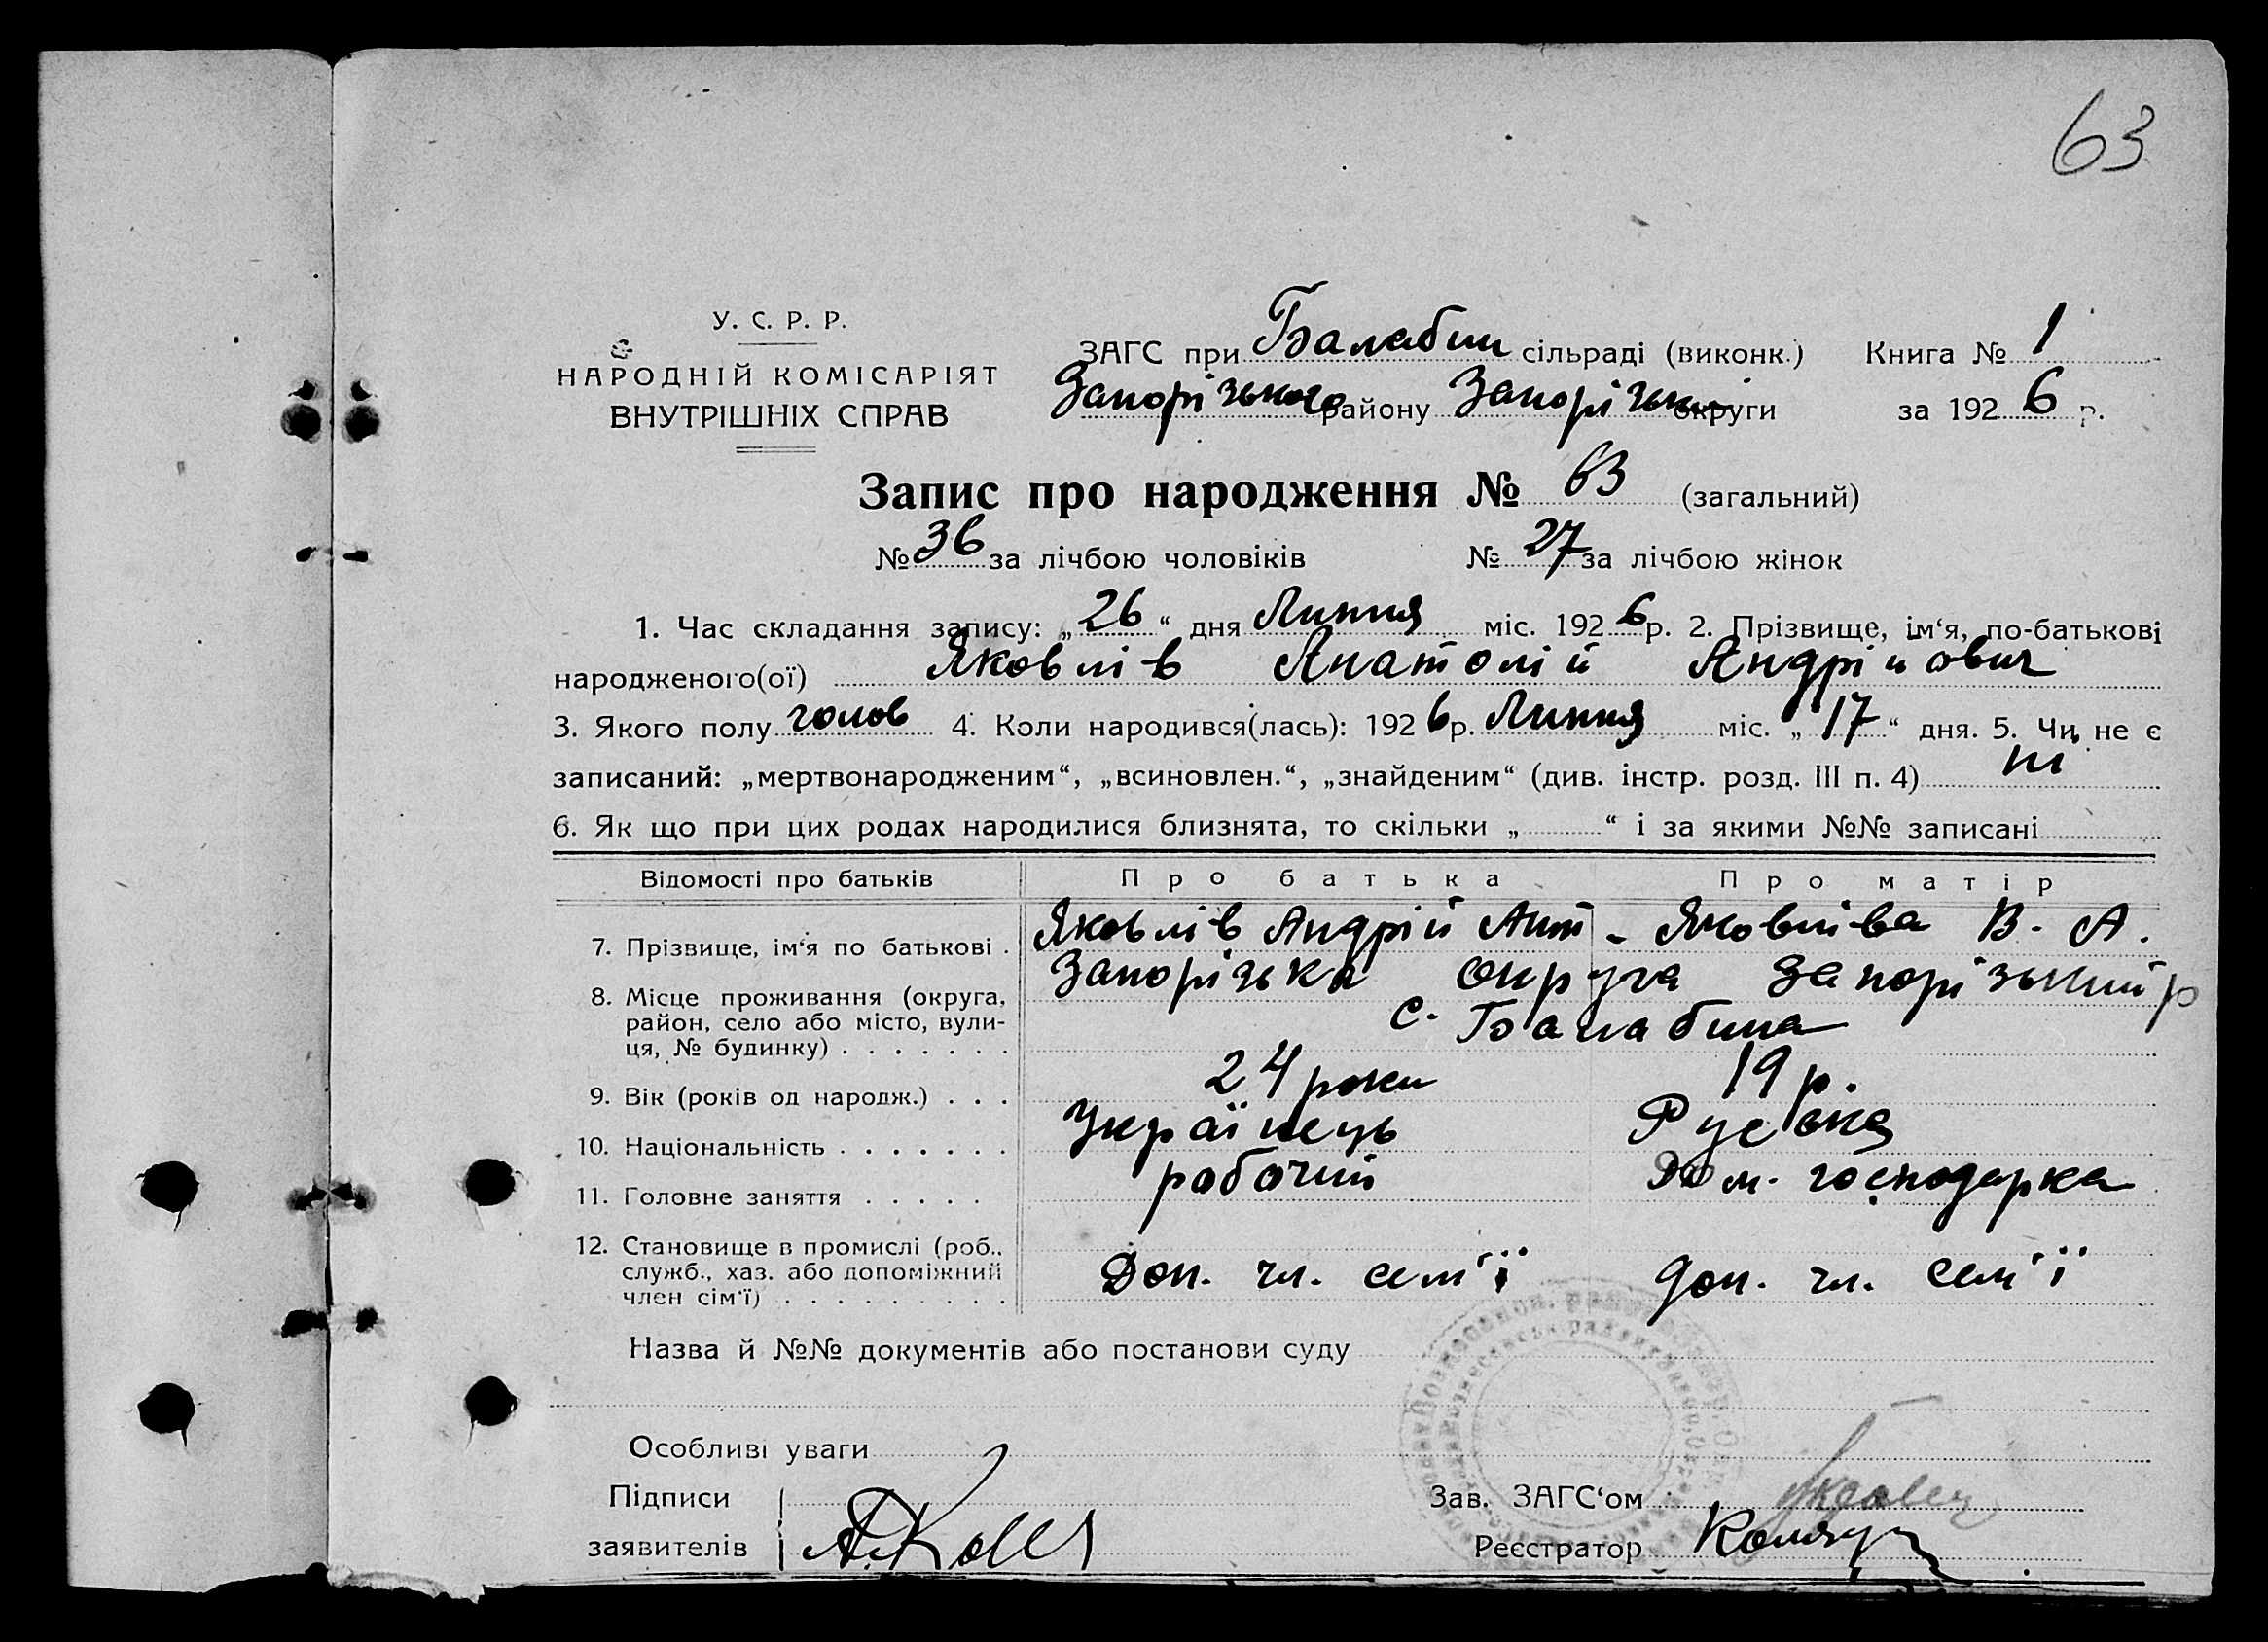 63
У. С. Р. Р.
НАРОДНІЙ КОМІСАРІЯТ
ВНУТРІШНІХ СПРАВ
ЗАГС при Балабин сільраді (виконк.) Книга № 1
Запорізького району Запорізьки округи за 192 6 р.
Запис про народження № 63 (загальний)
№ 36 за лічбою чоловіків № 27 за лічбою жінок
1. Час складання запису: „ 26 “ дня Липня міс. 192 6 р. 2. Прізвище, ім‘я, по-батькові
народженого(ої) Яковлів Анатолій Андрійович
3. Якого полу чолов 4. Коли народився(лась): 192 6 р. Липня міс. „ 17 “ дня. 5. Чи не є
записаний: „мертвонародженим“, „всиновлен.“, „знайденим“ (див. інстр. розд. III п. 4) ні
6. Як що при цих родах народилися близнята, то скільки „ “ і за якими №№ записані
Відомості про батьків Про батька Про матір
7. Прізвище, ім‘я по батькові . Яковлів Андрій Ант - Яковліва В. А.
8. Місце проживання (округа, район, село або місто, вулиця, № будинку) . . . . . . . Запорізька округа Запорізький р
с. Балабина
9. Вік (років од народж.) . . . 24 роки 19 р.
10. Національність . . . . . . . Українець Руська
11. Головне заняття . . . . . робочий Дом. господарка
12. Становище в промислі (роб., служб., хаз. або допоміжний член сім‘ї) . . . . . . . . . Доп. чл. сем'ї доп. чл. сем'ї
Назва й №№ документів або постанови суду
Особливі уваги
Підписи
заявителів
Зав. ЗАГС‘ом
Реєстратор